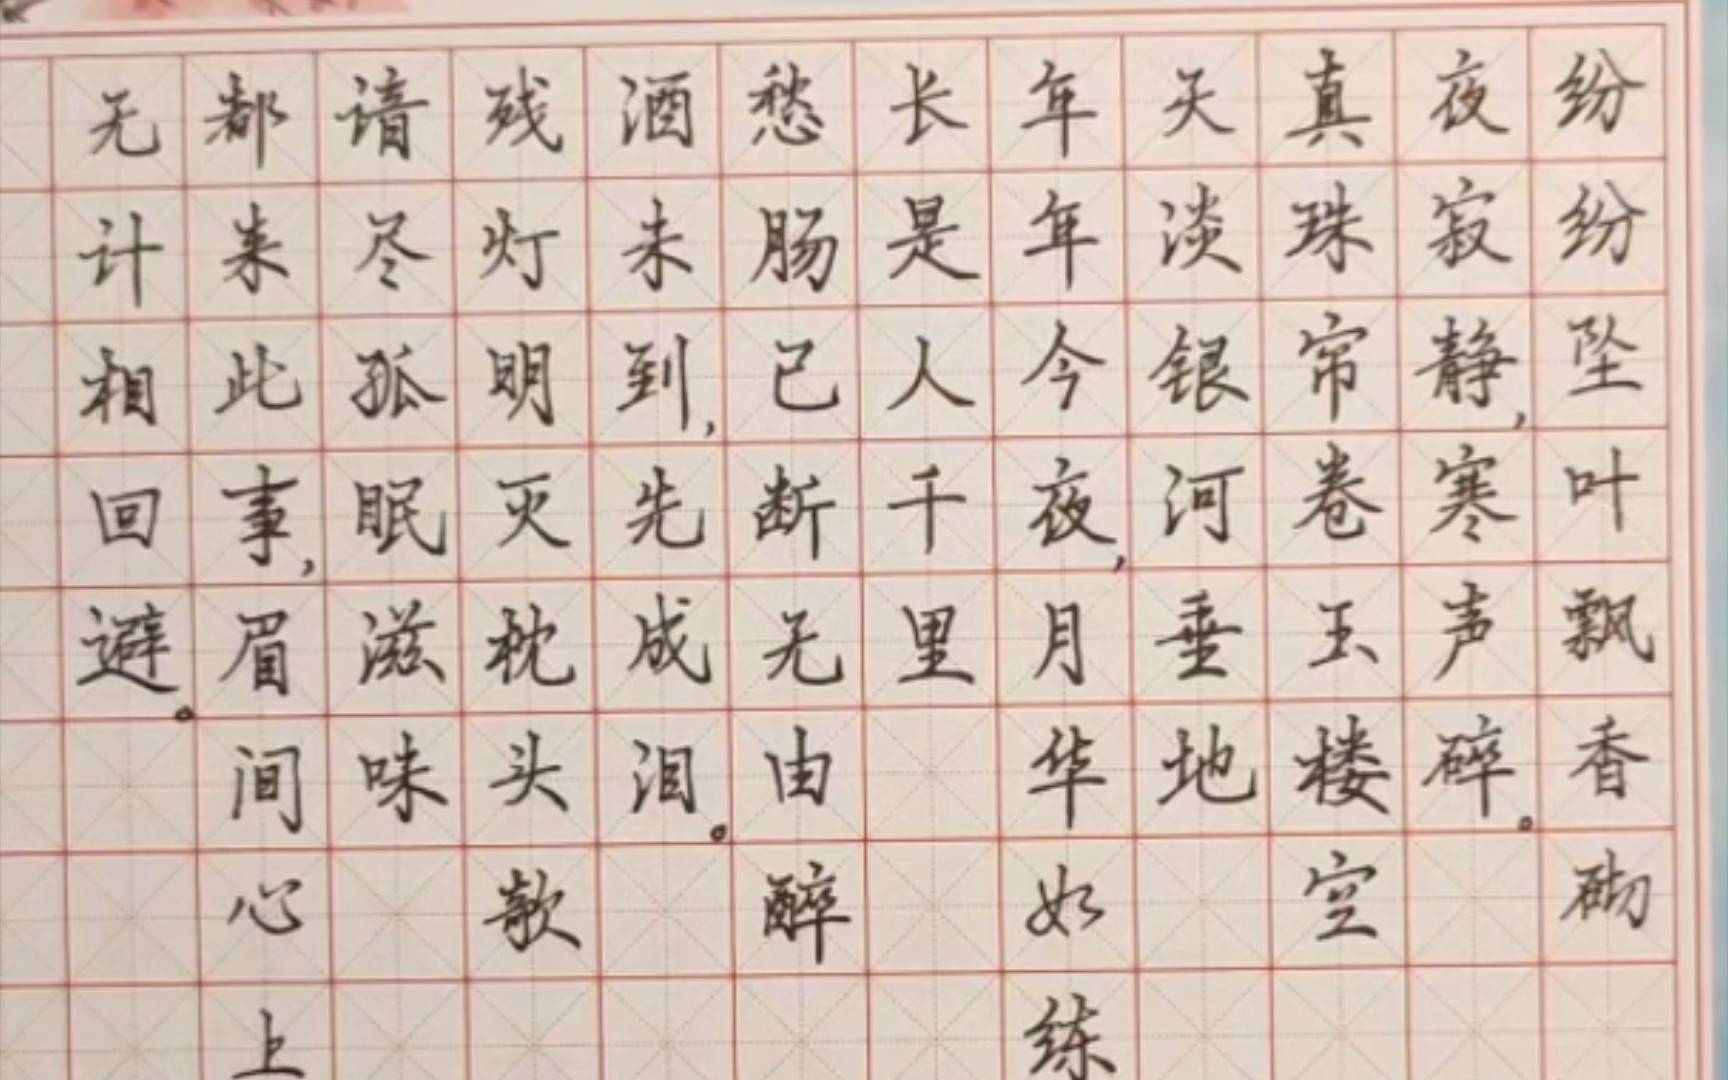 纷纷坠叶飘香砌
夜寂静，寒声碎。
真珠帘卷玉楼空
天淡银河垂地
年年今夜，月华如练
长是人千里
愁肠已断无由醉
酒未到，先成泪。
残灯明灭枕头欹
谙尽孤眠滋味
都来此事，眉间心上
无计相回避。